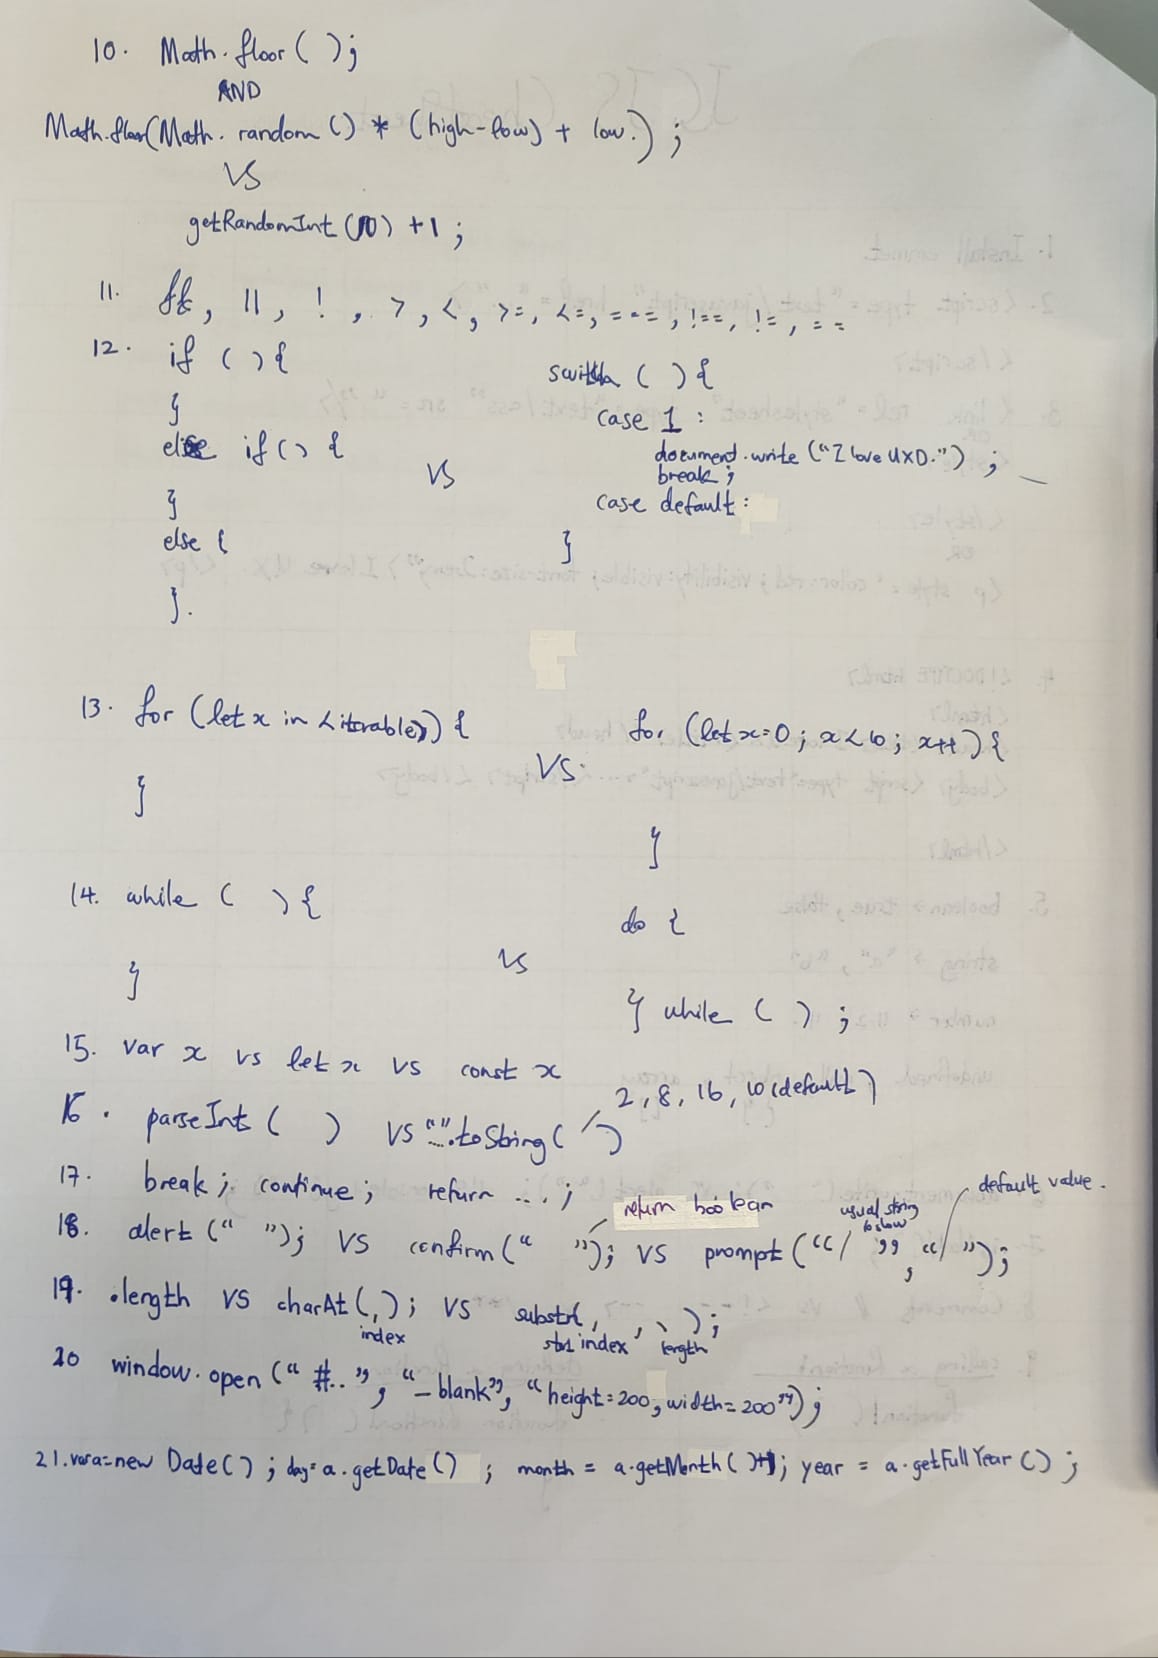 10. Math.floor ( );
AND
Math.floor(Math.random () * (high-low) + low.) ;
VS
getRandomInt (10) +1 ;
11. &&, ||, ! , > , < , >=, <=, ===, !==, !=, ==
12. if ( ) {
}
else if () {
}
else {
}.
VS
switch ( ) {
case 1 :
document.write ("I love UXD.") ;
break ;
case default :
}
13. for (let x in <iterable>) {
}
VS.
for (let x=0 ; x<10 ; x++) {
}
14. while ( ) {
}
VS
do {
} while ( ) ;
15. var x vs let x vs const x
16. parseInt ( ) VS "...".toString ( )
2, 8, 16, 10 (default)
17. break ; continue ; return ... ;
18. alert (" "); VS confirm (" "); VS prompt (" ", " ");
return boolean
usual string to show
default value.
19. .length VS charAt(,); VS substr( , , );
index
str1 index
length
20 window.open ("#..", "_blank", "height=200, width=200") ;
21. var a=new Date() ; day= a.getDate () ; month = a.getMonth ()+1; year = a.getFullYear () ;